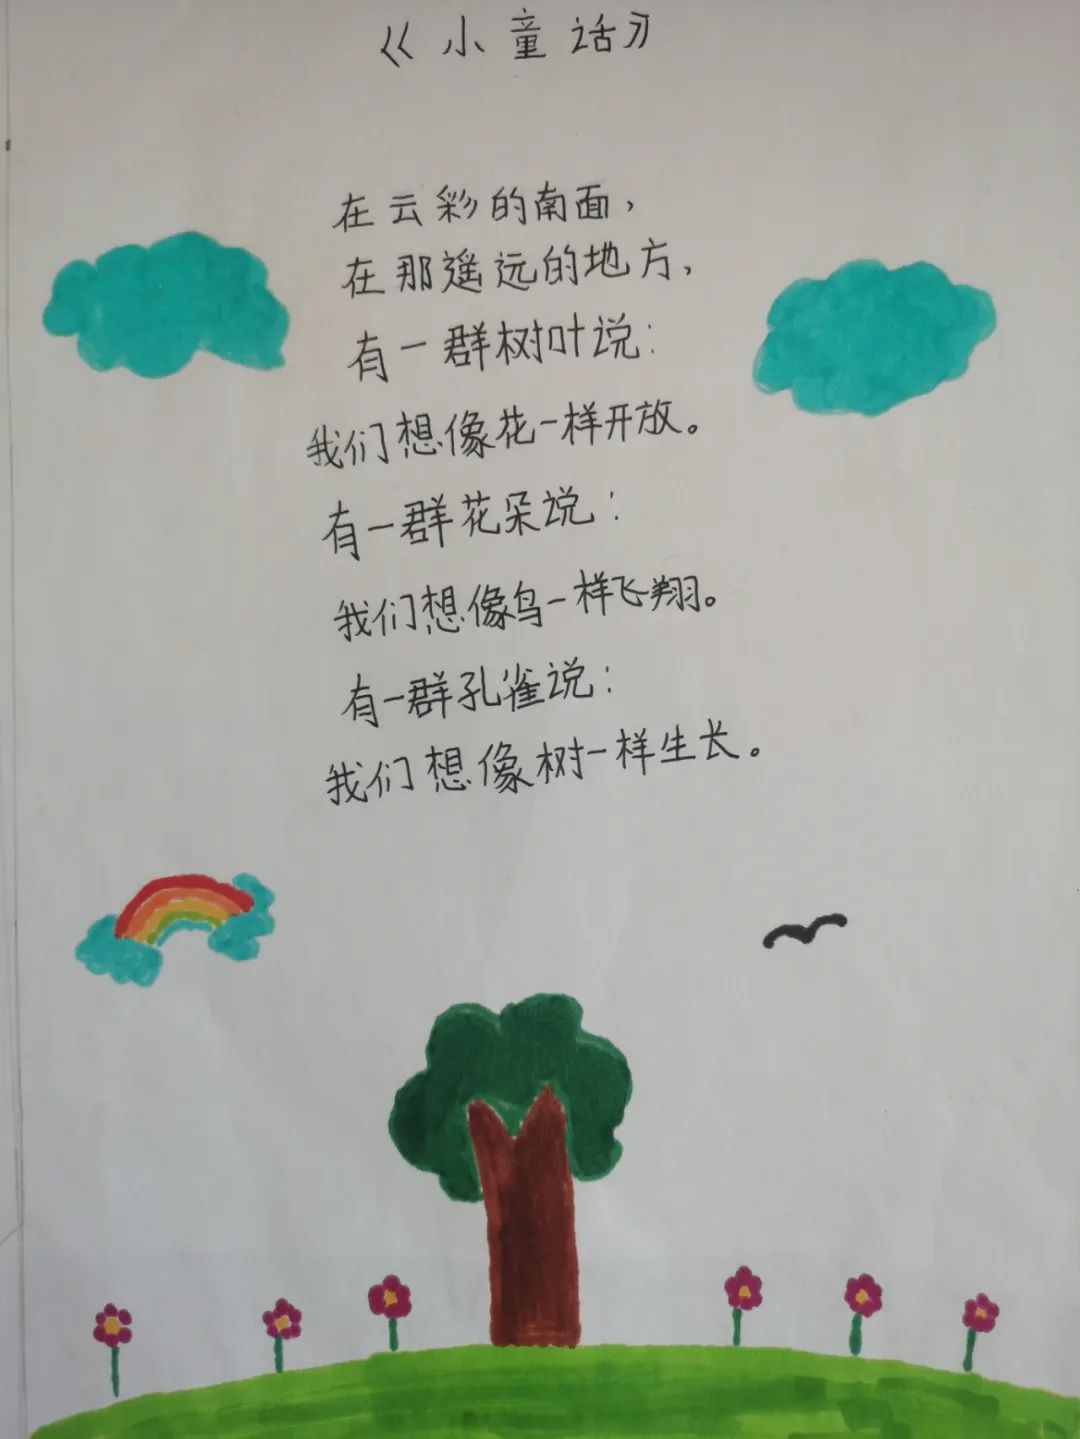 《小童话》
在云彩的南面，
在那遥远的地方，
有一群树叶说：
我们想像花一样开放。
有一群花朵说：
我们想像鸟一样飞翔。
有一群孔雀说：
我们想像树一样生长。